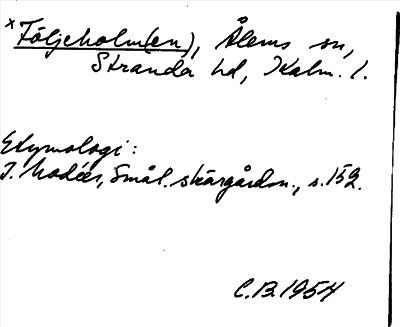 x Följeholm(en), Ålems sn,
Stranda hd, Kalm. l.
Etymologi:
I. Modéer, Smål. skärgårdsn., s. 152.
C.B. 1954